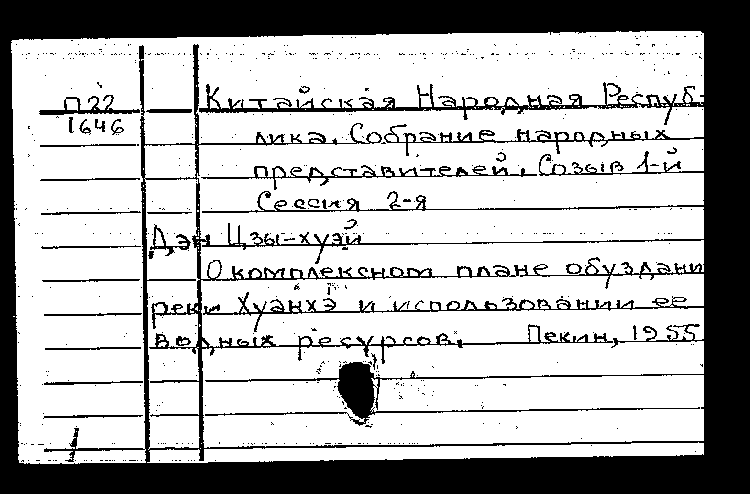 П22
1646
Китайская Народная Респуб-
лика. Собрание народных
представителей. Созыв 1-й
Сессия 2-я
Дэн Цзы-хуэй
О комплексном плане обуздани
реки Хуанхэ и использовании ее
водных ресурсов. Пекин, 1955
1